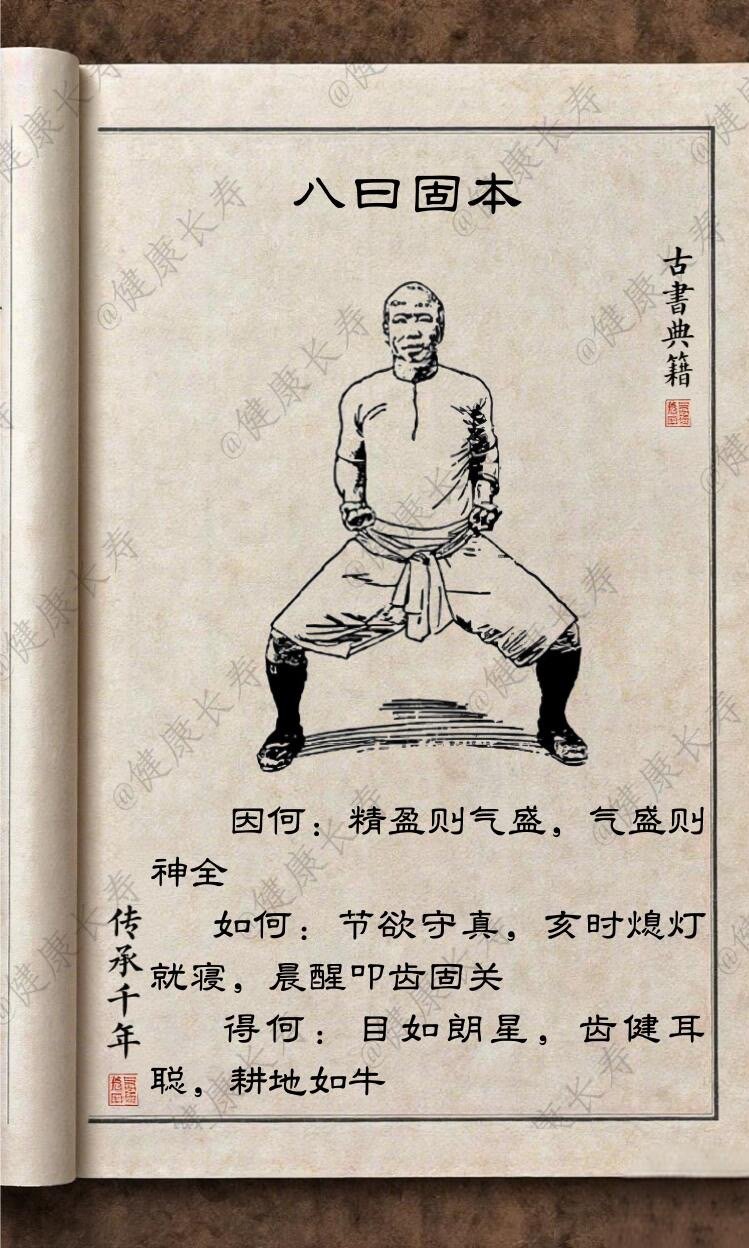 八曰固本
古書典籍
因何：精盈则气盛，气盛则
神全
如何：节欲守真，亥时熄灯
就寝，晨醒叩齿固关
得何：目如朗星，齿健耳
聪，耕地如牛
传承千年
@健康长寿